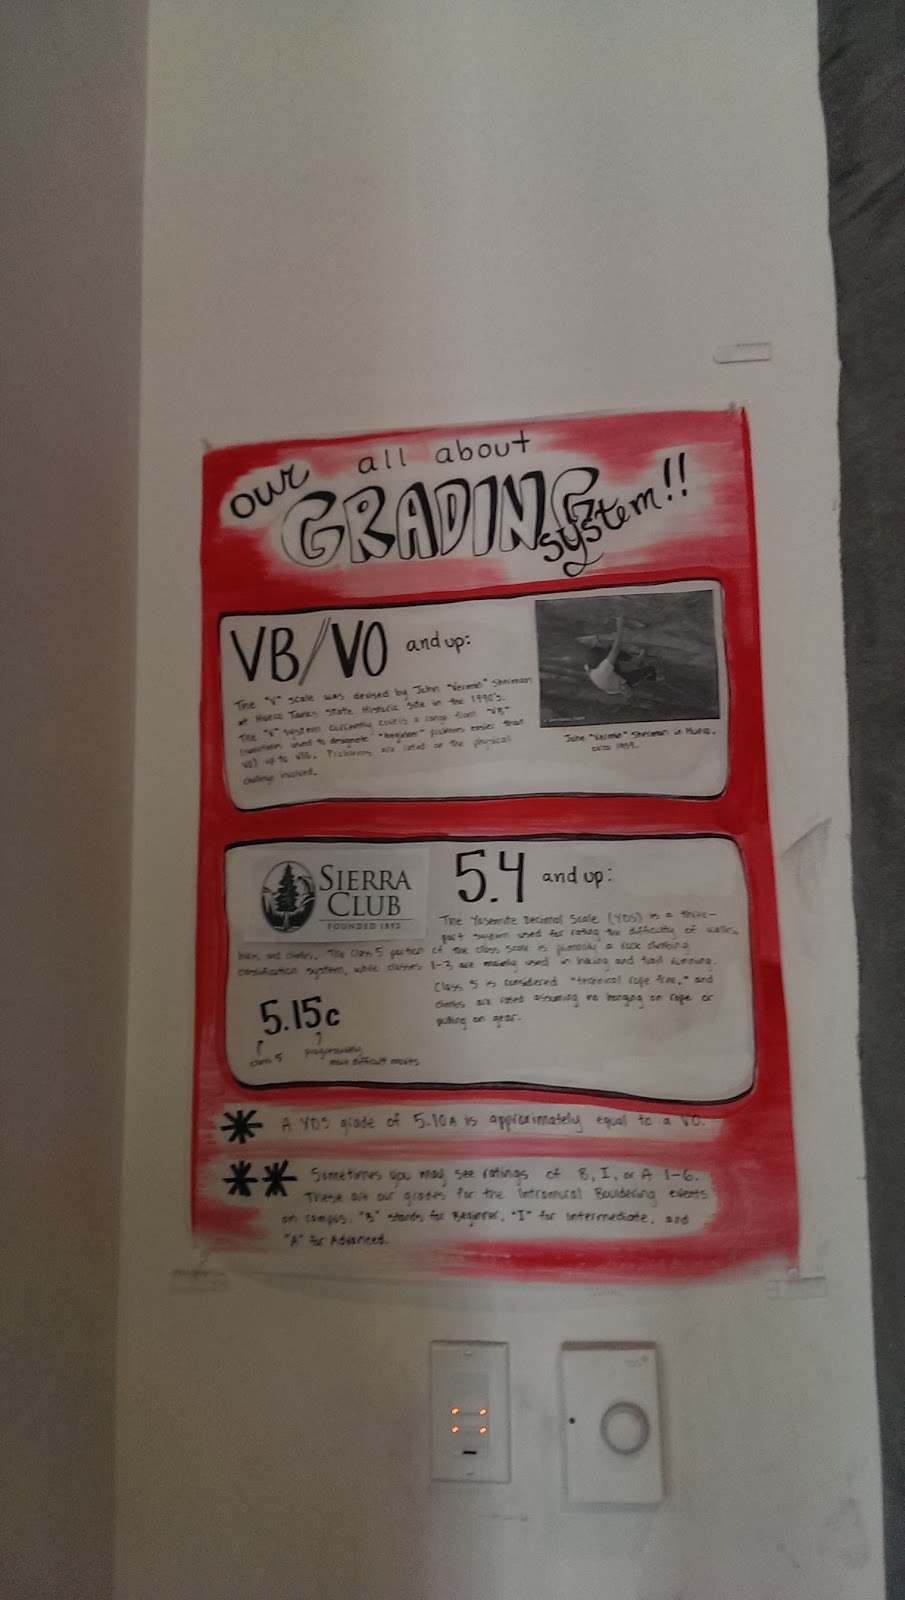 all about
our GRADING system!!
VB/V0 and up:
The "V" scale was devised by John "Vermin" Sherman
at Hueco Tanks State Historic Site in the 1990's.
The "V" system currently covers a range from "VB"
(sometimes used to designate "beginner" problems easier than
V0) up to V16. Problems are rated on the physical
challenge involved.
John "Vermin" Sherman in Hueco,
circa 1989.
SIERRA
CLUB
FOUNDED 1892
5.4 and up:
The Yosemite Decimal Scale (YDS) is a three-
part system used for rating the difficulty of walks,
hikes, and climbs. The Class 5 portion of the class scale is primarily a rock climbing
classification system, while classes 1-3 are mainly used in hiking and trail running.
Class 5 is considered "technical rope free," and
climbs are rated assuming no hanging on rope or
pulling on gear.
5.15c
class 5
progressively
more difficult moves
* A YDS grade of 5.10A is approximately equal to a V0.
** Sometimes you may see ratings of B, I, or A 1-6.
These are our grades for the Intramural Bouldering events
on campus. "B" stands for Beginner, "I" for Intermediate, and
"A" for Advanced.